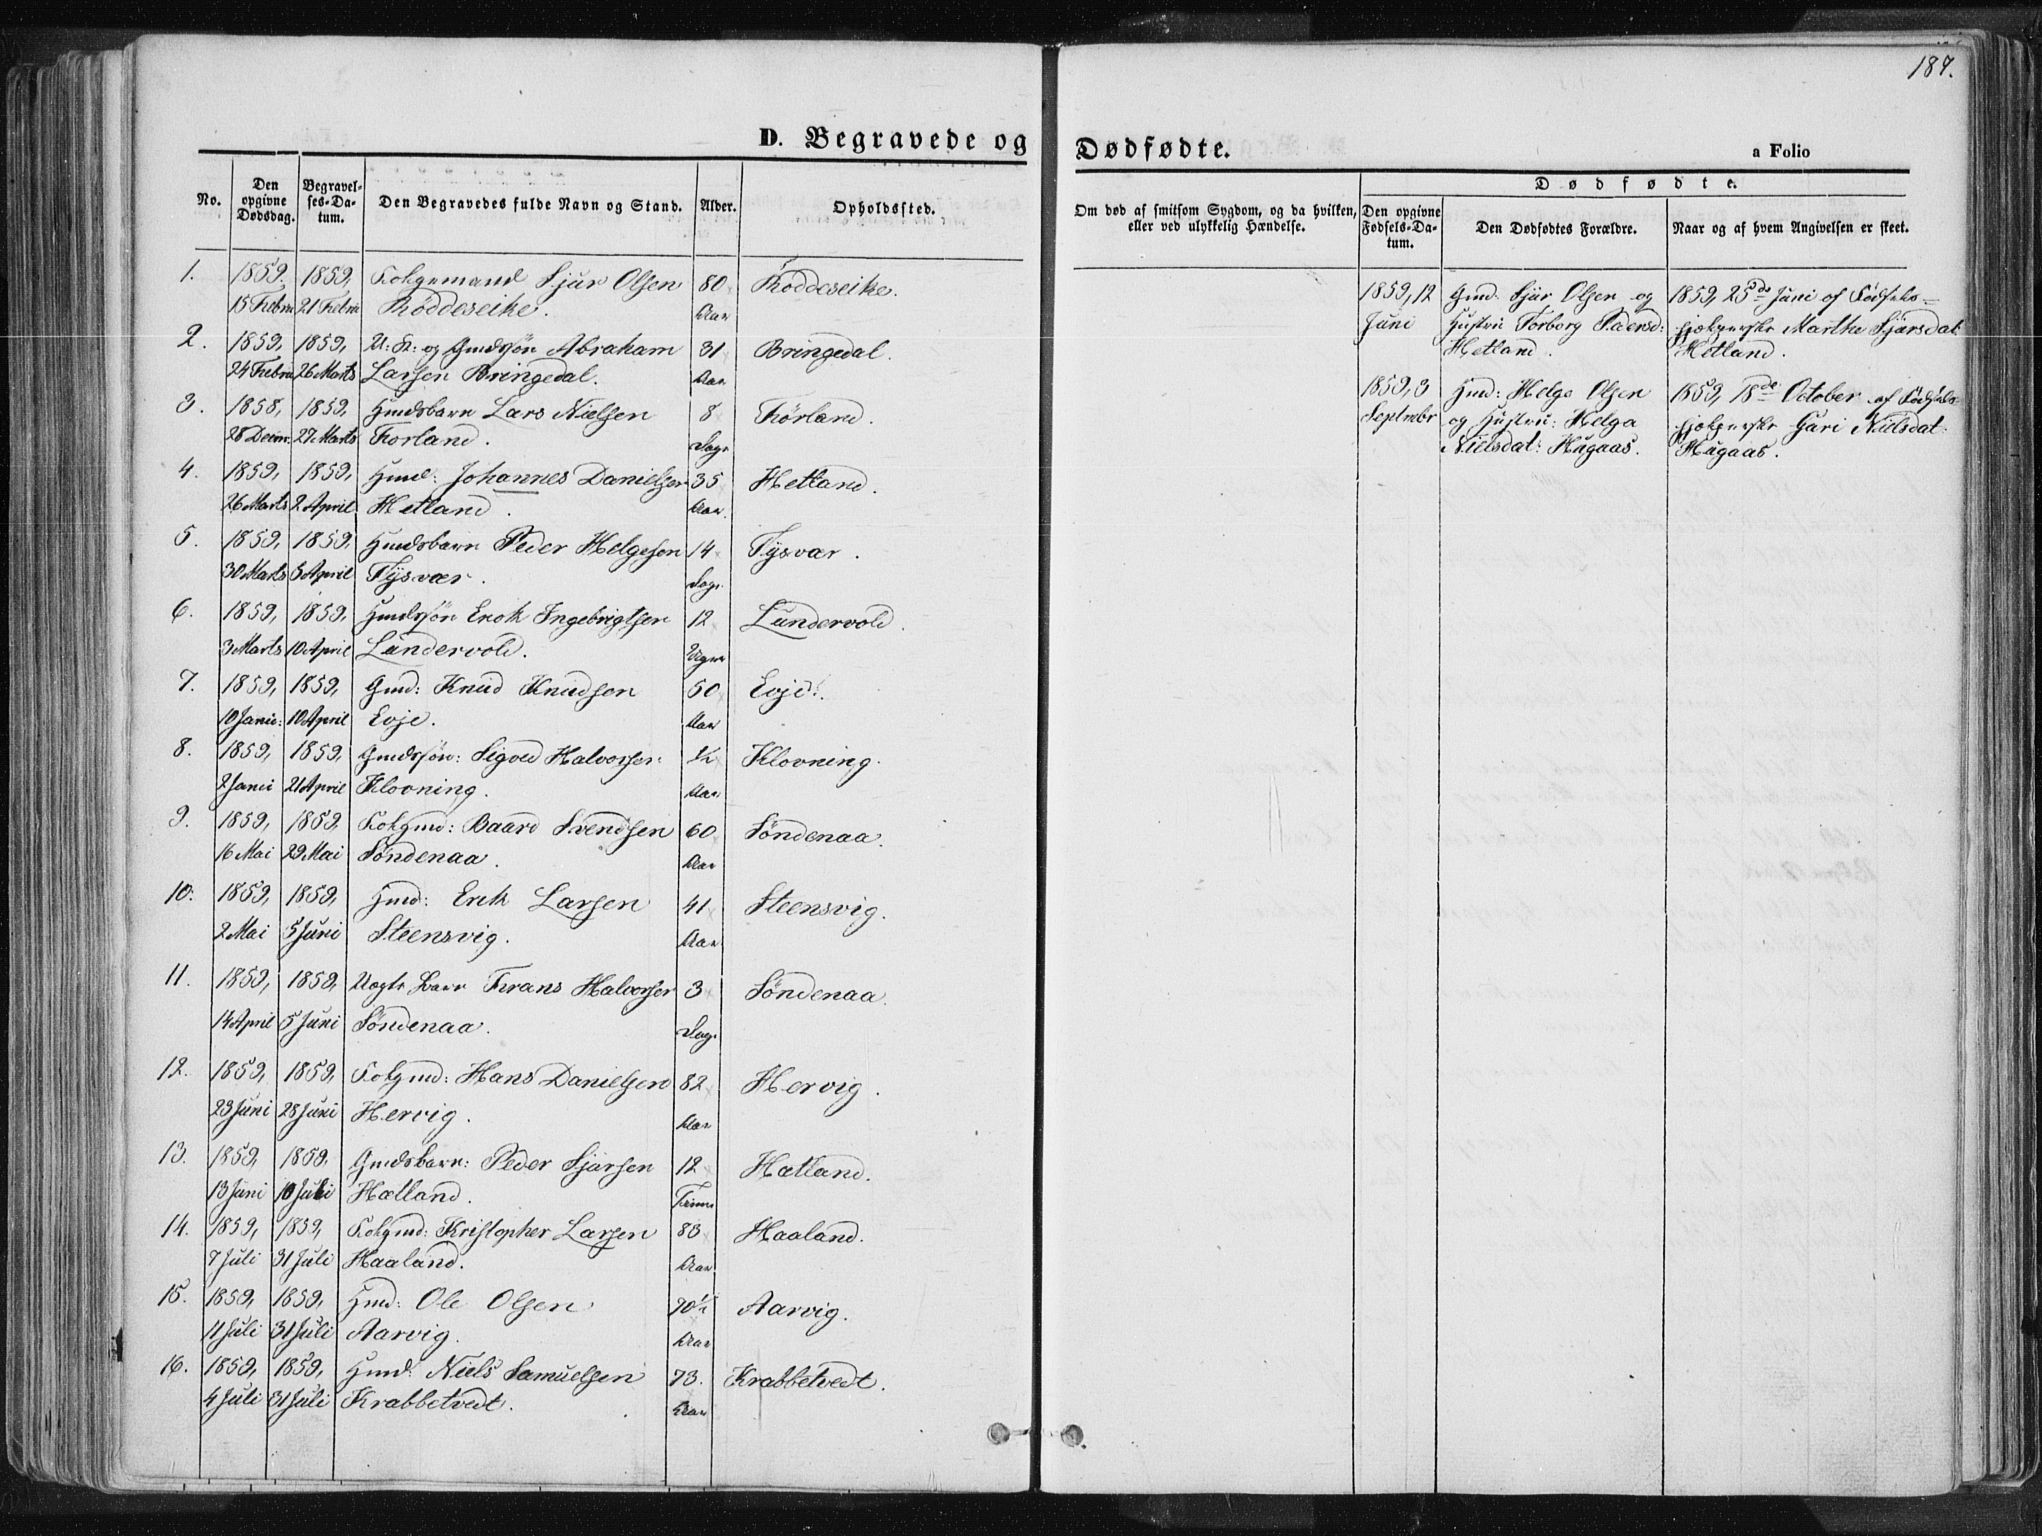 187.
D. Begravede og Dødfødte.
a Folio
No.
Den opgivne Dødsdag.
Begravelses-Datum.
Den Begravedes fulde Navn og Stand.
Alder.
Opholdssted.
Om død af smitsom Sygdom, og da hvilken, eller ved ulykkelig Hændelse.
Dødfødte.
Den opgivne Fødsels-Datum.
Den Dødfødtes Forældre.
Naar og af hvem Angivelsen er skeet.
1. 1859. 1859, Folgemand Sjur Olsen 80 Röddeseike.
15 Febru 21 Febru Röddeseike. Aar
2. 1859, 1859, U: K: og Gmdssön Abraham 31 Bringedal.
24 Febru 26 Marts Larsen Bringedal. Aar
3. 1858, 1859, Hmdsbarn Lars Nielsen 8 Förland.
28 Decbr. 27 Marts Forland. Dage
4. 1859, 1859, Hmd: Johannes Danielsen 35 Hetland.
26 Marts 2 April Hetland. Aar.
5. 1859, 1859, Hmdsbarn Peder Helgesen 14 Tysvær.
30 Marts 3 April Tysvær. Dage
6. 1859, 1859, Hmdssön Enok Ingebrigtsen 12 Lundervold.
3 Marts 10 April Lundervold. Uger
7. 1859, 1859, Gmd: Knud Knudsen 50 Evje.
10 Janu: 10 April Evje. Aar
8. 1859, 1859, Gmdssön: Sigved Halvorsen ½ Klovning.
2 Janu 21 April Klovning. Aar
9. 1859, 1859, Folgmd: Baard Svendsen 60 Söndenaa.
16 Mai 29 Mai Söndenaa. Aar
10. 1859, 1859, Hmd: Erik Larsen 41 Steensvig.
2 Mai 5 Juni Steensvig. Aar
11. 1859, 1859, Uægte Barn Frans Halvorsen 3 Söndenaa.
14 April 5 Juni Söndenaa. Dage
12. 1859, 1859, Folgmd: Hans Danielsen 82 Hervig.
23 Juni 28 Juni Hervig. Aar
13. 1859, 1859, Gmdsbarn: Peder Sjursen 12 Hætland.
13 Juni 10 Juli Hætland. Timer
14. 1859, 1859, Folgmd: Kristopher Larsen 83 Haaland.
7 Juli 31 Juli Haaland. Aar
15. 1859, 1859, Hmd: Ole Olsen 70½ Aarvig.
11 Juli 31 Juli Aarvig. Aar
16. 1859, 1859, Hmd: Niels Samuelsen 73. Krabbetvedt.
4 Juli 31 Juli Krabbetvedt. Aar
1859, 12 Gmd: Sjur Olsen og 1859, 25de Juni af Födsels-
Juni Hustru Torborg Pedersd: hjelperske Martha Sjursdat:
Hetland. Hetland.
1859, 3 Hmd: Helge Olsen 1859, 18de October af Födsels-
Septembr og Hustru: Helga hjelperske Guri Nielsdat:
Nielsdat: Hugaas. Hugaas.